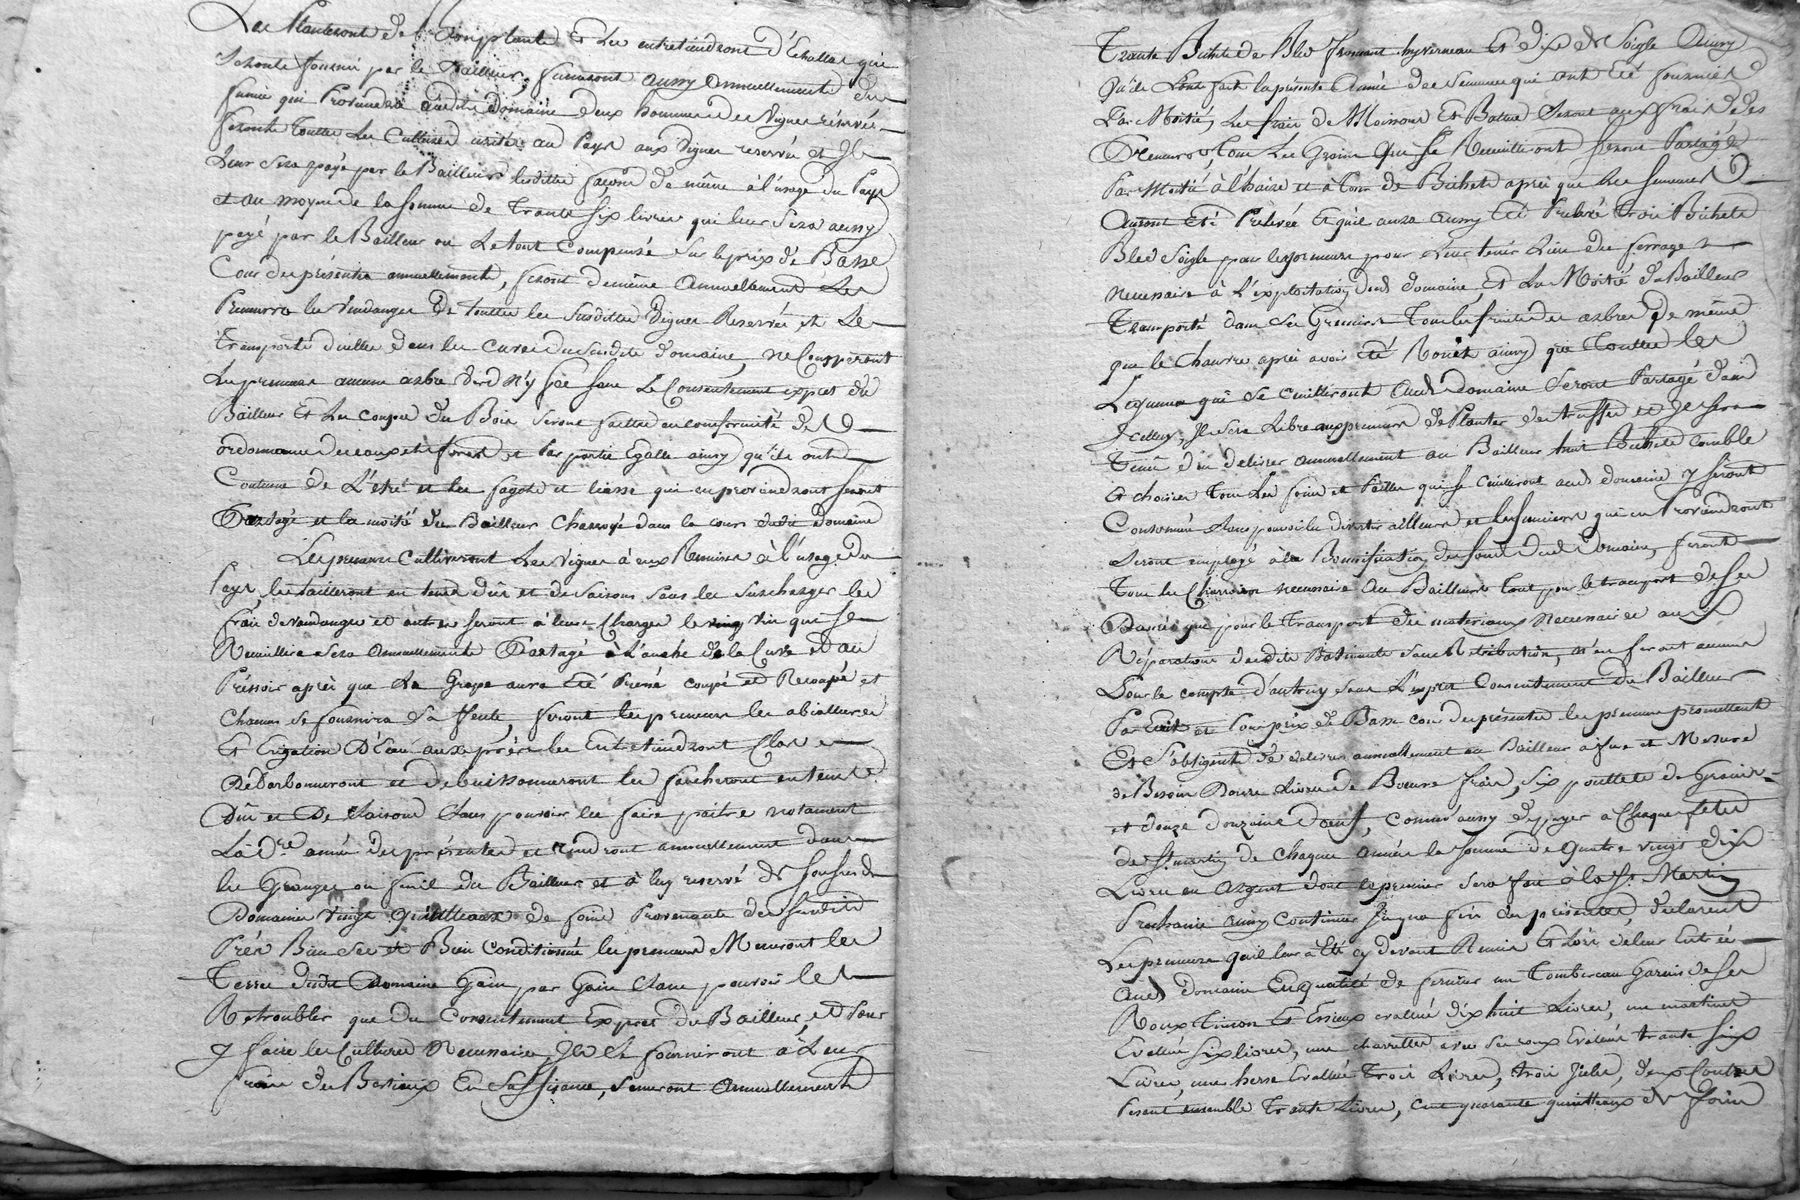 Les Planteront de Complante Et Les entretiendront d'Echallat qui
Seronts fourni par le Bailleur, fumeront aussy Annuellement du
fumié qui Proviendra dudit domaine deux hommes de vignes réservés
feronts Touttes Les Cultures usitée au Pays aux vignes reservée et Il
Leur Sera payé par le Bailleur lesdittes façons de même à l'usage du Pays
et au moyen de la Somme de Trante Six livres qui leur Sera aussy
payé par le Bailleur ou Le tout Compensé Sur le prix de Basse
Cour des présentes annuellement, feront de même Annuellement Les
Preneurs les Vendanges De touttes les Susdittes Vignes Reservées et Le
Transports d'icelles dans les Cuves du Susdit domaine, ne Coupperont
Les preneurs aucuns arbres verd N'y sec sans Le Consentement exprès du
Bailleur Et Les coupes du Bois Seront faittes en conformité de
ordonnance des eaux et forest et par portie Egalle ainsy qu'ils ont
Coutume de L'etre et les fagots et liasse qui en proviendront Seront
Partagé et la moitié du Bailleur Charroyé dans la cour dudit domaine
Les preneurs Cultiveront Les Vignes à eux Remises à l'usage du
Pays, les tailleront en tems dûs et de Saisons Sans les Surcharger les
frais de vandanges et autres Seront à leurs Charges le vin qui Se
Recuillira Sera Annuellement Partagé à L'anche de la Cuve et au
Préssoir après que La Grape aura Eté Pressé coupé et Recoupé et
Chacun Se fournira Sa feute, feront les preneurs les abiallures
Et Erigation D'Eau aux prés les Entretiendront Clos
Dédarbonneront et debuissonneront les faucheront en tems
Dûs et De Saisons Sans pouvoir les faire paitre notament
La Dre année des présentes et rendront annuellement dans
les Granges ou fenil du Bailleur et à luy reservé de
Domaine Vingt Quinttaux de foins Provenants des Susdits
Prés Bien Sec et Bien Conditionné les preneurs Meneront les
Terres dudit Domaine Gain par Gain Sans pouvoir les
Retroubler que du Consentement Exprès du Bailleur, et Pour
y faire les Cultures Nécessaires, Ils Se fourniront à Leurs
frais de Bestiaux En Suffisance, Semeront Annuellement
Trante Bichets de Bled froment hyverneau Et dix de Soigle Ainsy
Qu'ils L'ont fait la présente Année des Semences qui ont Eté fournies
Par Moitié, Les frais de Moissons Et Battue Seront aux frais des
Preneurs, Tous Les Grains Qui Se Recuilliront Seront Partagé
Par Moitié à l'haire et à Tour de Bichets après que Les Semences
Auront Eté Prélevée Et qu'il aura aussy Eté Prélevé Trois Bichets
Bled Soigle pour les preneurs pour Leur tenir Lieu des ferrages
necessaire à L'exploitation dud domaine Et La Moitié du Bailleur
Transporté dans Ses Greniers Tous les fruits des arbres De même
que le Chanvre après avoir Eté Rouët ainsy que Touttes les
Légumes qui Se Cuilleront Audt domaine Seront Partagé dans
Icelluy, Il Sera Libre aux preneurs de Planter des truffes et Il Sera
Tenû d'en délivrer annuellement au Bailleur huit Bichets Comble
Et choisies Tous Les foins et Pailles qui Se Cuilliront aud domaine y Seront
Consommé Sans pouvoir les divertir ailleurs et les fumiers qui en Proviendront
Seront employé à la Bonnification des fonds dudt Domaine, feront
Tous Les Charrois necessaire Au Bailleur tout pour le transport de Ses
Danrés que pour le Transport des matériaux Necessaire aux
Réparations desdits Batiments Sans Retribution, n'en feront aucuns
Pour le compte d'autruy Sans L'exprès Consentement du Bailleur
Par Ecrit et Pour prix de Basse cour des présentes les preneurs promettent
Et S'obligent de délivrer annuellement au Bailleur à fur et Mesure
de Besoin Douze Livres de Beurre frais, Six poullets de Grains
et douze douzaine d'oeufs, Comme aussy de payer à Chaque fête
de St martin de chaque année la Somme de Quatre vingt dix
Livres en Argent dont le premier Sera fait à la St Martin
Prochaine ainsy Continuer Jusqua fin des présentes, déclarent
Les preneurs qu'il leur à Eté cy devant Remis Et Lors de leur Entrée
Aud domaine En qualité de fermier un Tombereau Garnis de Ses
Roux Timon Et Essieux évalué dix huit Livres, une
Evallué Six livres, une charrettes avec Ses roux Evalué trante Six
Livres, une herse Evallué Trois Livres, trois Jielles, deux Coutres
Pesant ensemble Trante Livres, Cent quarante quinttaux de foin